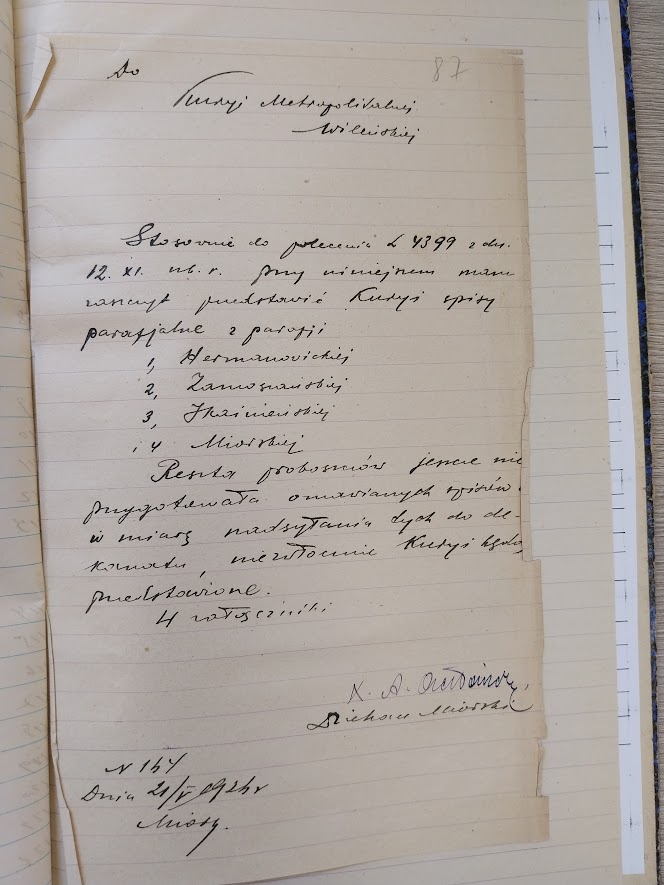 87
Do
Kurji Metropolitalnej
Wileńskiej
Stosownie do polecenia L 4399 z dn.
12. XI. ub. r. przy niniejszem mam
zaszczyt przedstawić Kurji spisy
parafjalne z parafji
1, Hermanowickiej
2, Zamoszańskiej
3, Ikaźnieńskiej
i 4 Miorskiej
Reszta proboszczów jeszcze nie
przygotowała omawianych spisów
w miarę nadsyłania tych do de-
kanatu, niezwłocznie Kurji będą
przedstawione.
4 załączniki
X. A.
Dziekan Miorski
N 164
Dnia 21/V 1924 r
Miory.